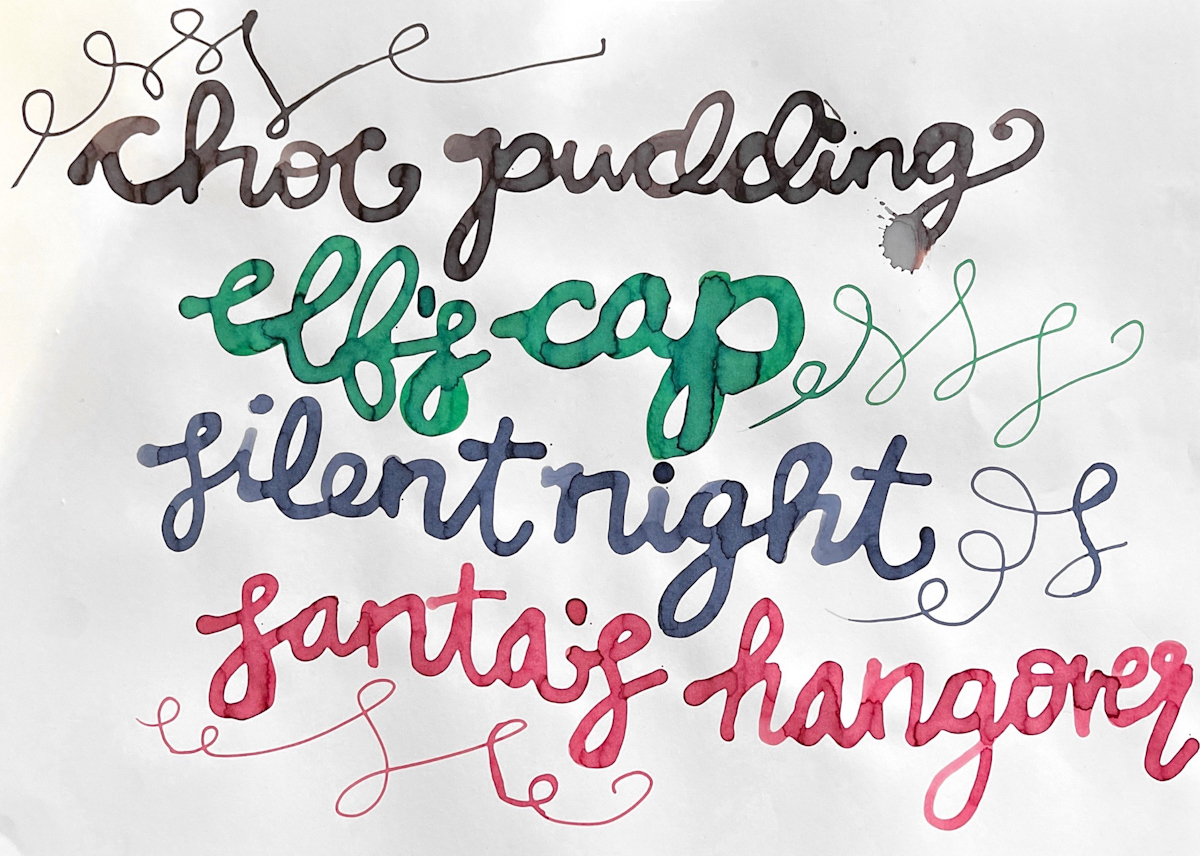 choc pudding
elf's cap
silent night
santa's hangover